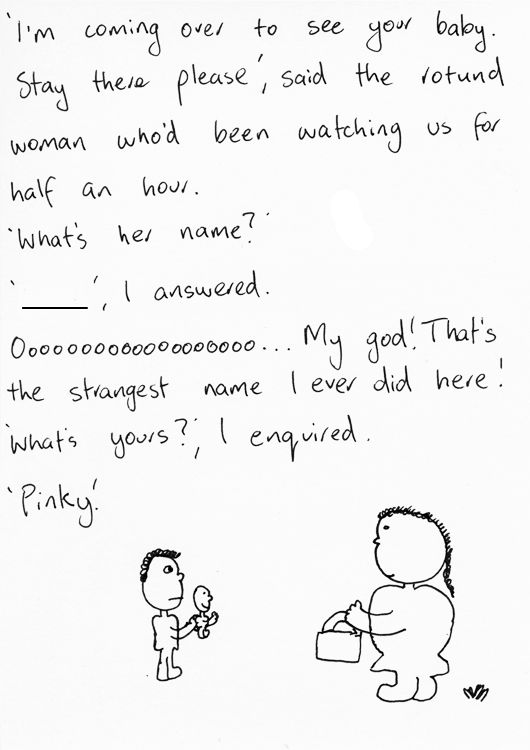 'I'm coming over to see your baby.
Stay there please', said the rotund
woman who'd been watching us for
half an hour.
'What's her name?'
'_____', I answered.
Ooooooooooooooooooo... My god! That's
the strangest name I ever did here!
'What's yours?', I enquired.
'Pinky'.